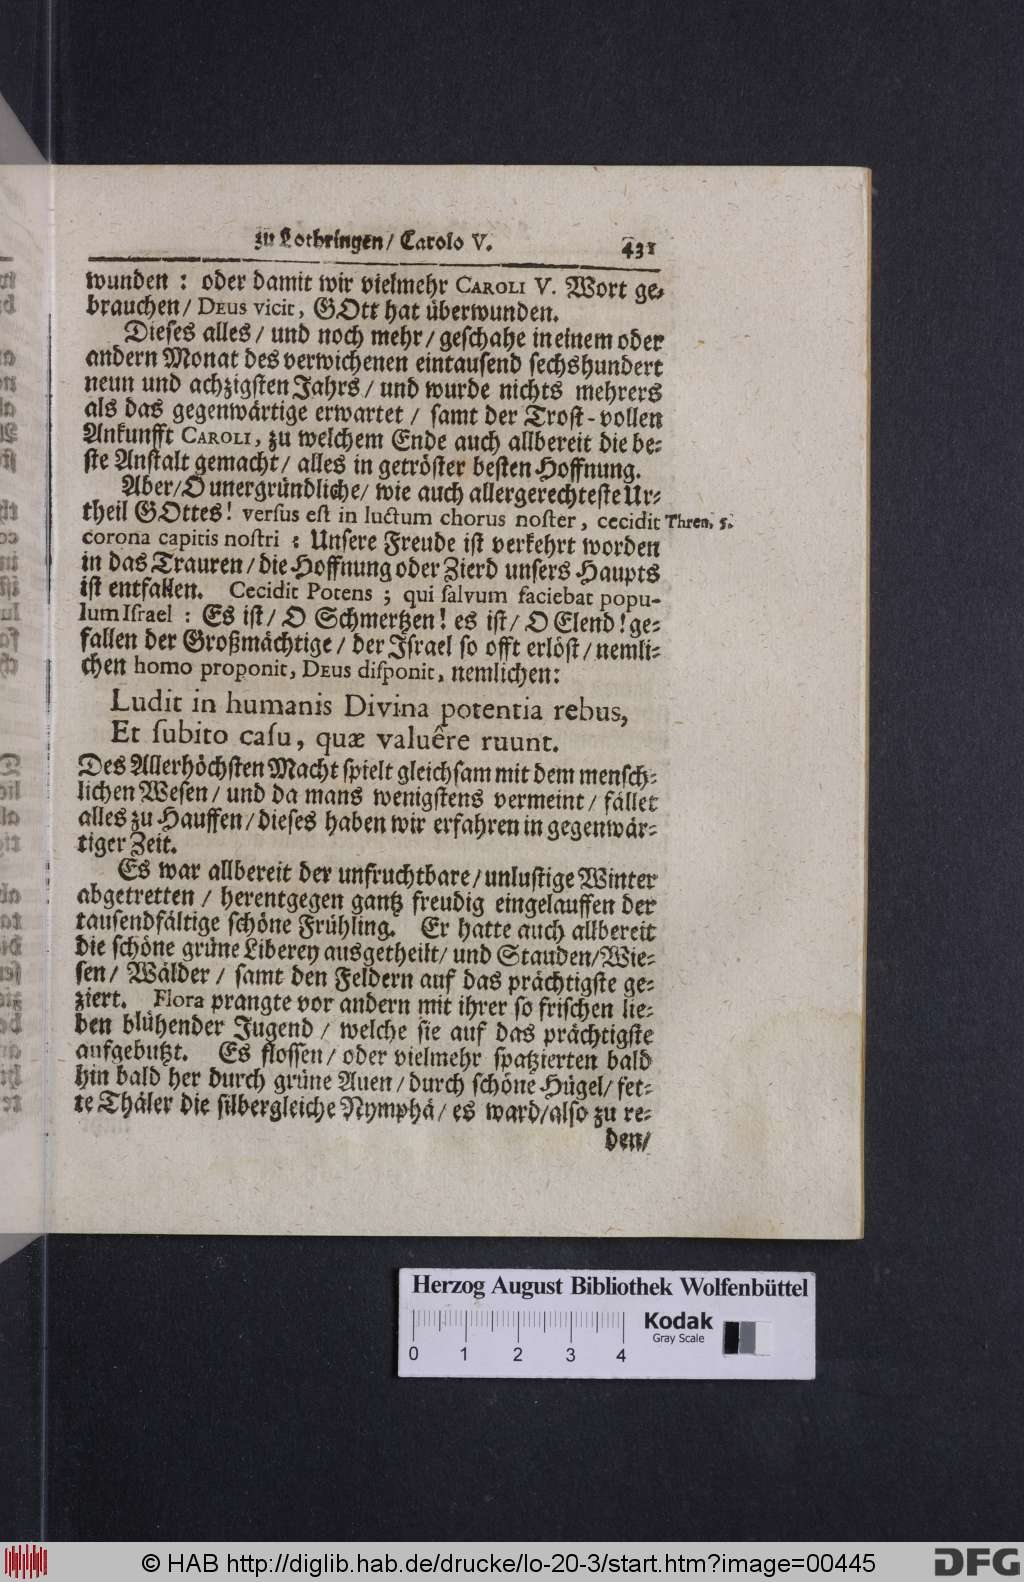 zu Lothringen/ Carolo V. 431
wunden : oder damit wir vielmehr CAROLI V. Wort ge-
brauchen/ DEUS vicit, GOtt hat überwunden.
Dieses alles / und noch mehr / geschahe in einem oder
andern Monat des verwichenen eintausend sechshundert
neun und achzigsten Jahrs / und wurde nichts mehrers
als das gegenwärtige erwartet / samt der Trost-vollen
Ankunfft CAROLI, zu welchem Ende auch allbereit die be-
ste Anstalt gemacht / alles in getröster besten Hoffnung.
Aber/ O unergründliche/ wie auch allergerechteste Ur-
theil GOttes! versus est in luctum chorus noster, cecidit Thren. 5.
corona capitis nostri : Unsere Freude ist verkehrt worden
in das Trauren / die Hoffnung oder Zierd unsers Haupts
ist entfallen. Cecidit Potens ; qui salvum faciebat popu-
lum Israel : Es ist / O Schmertzen! es ist / O Elend! ge-
fallen der Großmächtige / der Israel so offt erlöst / nemli-
chen homo proponit, DEUS disponit, nemlichen:
Ludit in humanis Divina potentia rebus,
Et subito casu, quæ valuêre ruunt.
Des Allerhöchsten Macht spielt gleichsam mit dem mensch-
lichen Wesen / und da mans wenigstens vermeint / fället
alles zu Hauffen / dieses haben wir erfahren in gegenwär-
tiger Zeit.
Es war allbereit der unfruchtbare / unlustige Winter
abgetretten / herentgegen gantz freudig eingelauffen der
tausendfältige schöne Frühling. Er hatte auch allbereit
die schöne grüne Liberey ausgetheilt / und Stauden/Wie-
sen / Wälder / samt den Feldern auf das prächtigste ge-
ziert. Flora prangte vor andern mit ihrer so frischen lie-
ben blühender Jugend / welche sie auf das prächtigste
aufgebutzt. Es flossen / oder vielmehr spatzierten bald
hin bald her durch grüne Auen / durch schöne Hügel / fet-
te Thäler die silbergleiche Nymphä / es ward/also zu re-
den/
Herzog August Bibliothek Wolfenbüttel
Kodak
Gray Scale
0 1 2 3 4
© HAB http://diglib.hab.de/drucke/lo-20-3/start.htm?image=00445
DFG